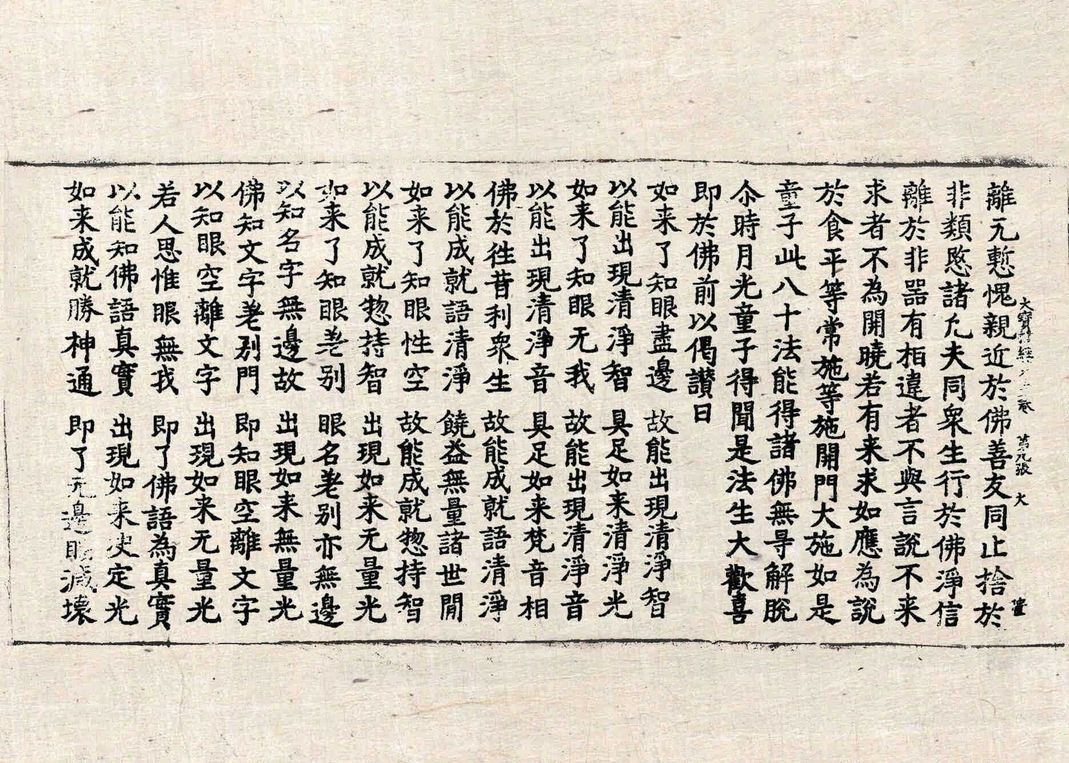 離无慙愧親近於佛善友同止捨於
大寶積經 卷 第九張 大
非類愍諸凢夫同衆生行於佛淨信
離於非器有相違者不與言說不来
求者不為開曉若有来求如應為說
於食平等常施等施開門大施如是
童子此八十法能得諸佛無㝵解脫
尒時月光童子得聞是法生大歡喜
即於佛前以偈讃曰
如来了知眼盡邊 故能出現清淨智
以能出現清淨智 具足如来清淨光
如来了知眼无我 故能出現清淨音
以能出現清淨音 具足如来梵音相
佛於往昔利衆生 故能成就語清淨
以能成就語清淨 饒益無量諸世閒
如来了知眼性空 故能成就惣持智
以能成就惣持智 出現如来无量光
如来了知眼差别 眼名差别亦無邊
以知名字無邊故 出現如来無量光
佛知文字差别門 即知眼空離文字
以知眼空離文字 出現如来无量光
若人思惟眼無我 即了佛語為真實
以能知佛語真實 出現如来决定光
如来成就勝神通 即了无邊眼滅壊